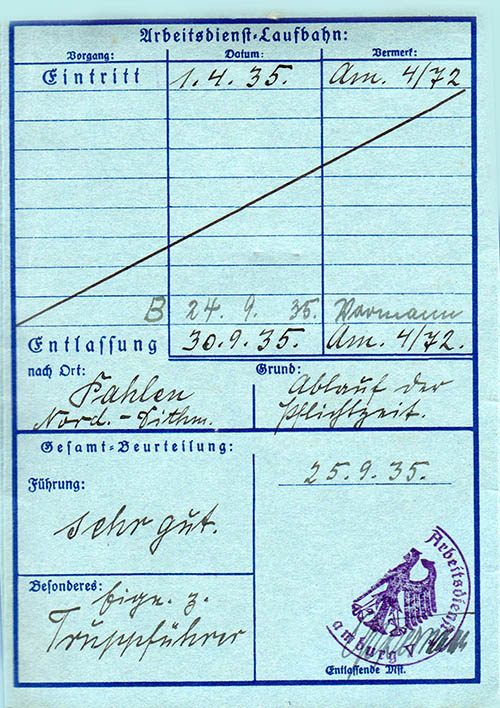 Arbeitsdienst-Laufbahn:
Vorgang: Datum: Vermerk:
Eintritt 1.4.35. Am. 4/72
B 24. 9. 35. Vormann
Entlassung 30.9.35. Am. 4/72.
nach Ort:
Pahlen
Nord.-Dithm.
Grund:
Ablauf der
Pflichtzeit.
Gesamt-Beurteilung:
Führung:
sehr gut.
25.9.35.
Besonderes:
Eign. z.
Truppführer
Arbeitsdienst
amburg
Entlassende Dst.